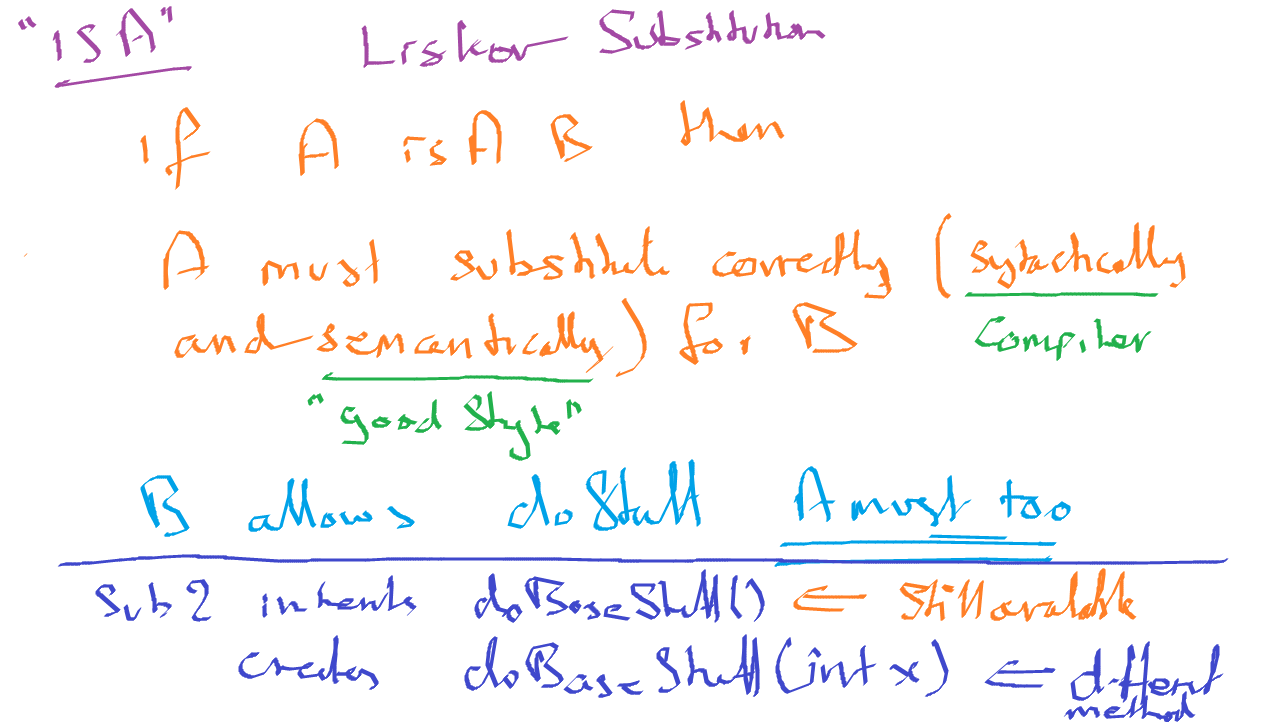 "isA" Liskov Substitution
if A isA B then
A must substitute correctly (sytactically
and semantically) for B
compiler
"good style"
B allows doStuff A must too
Sub2 inherits doBaseStuff() ⇐ still available
creates doBaseStuff(int x) ⇐ different
method